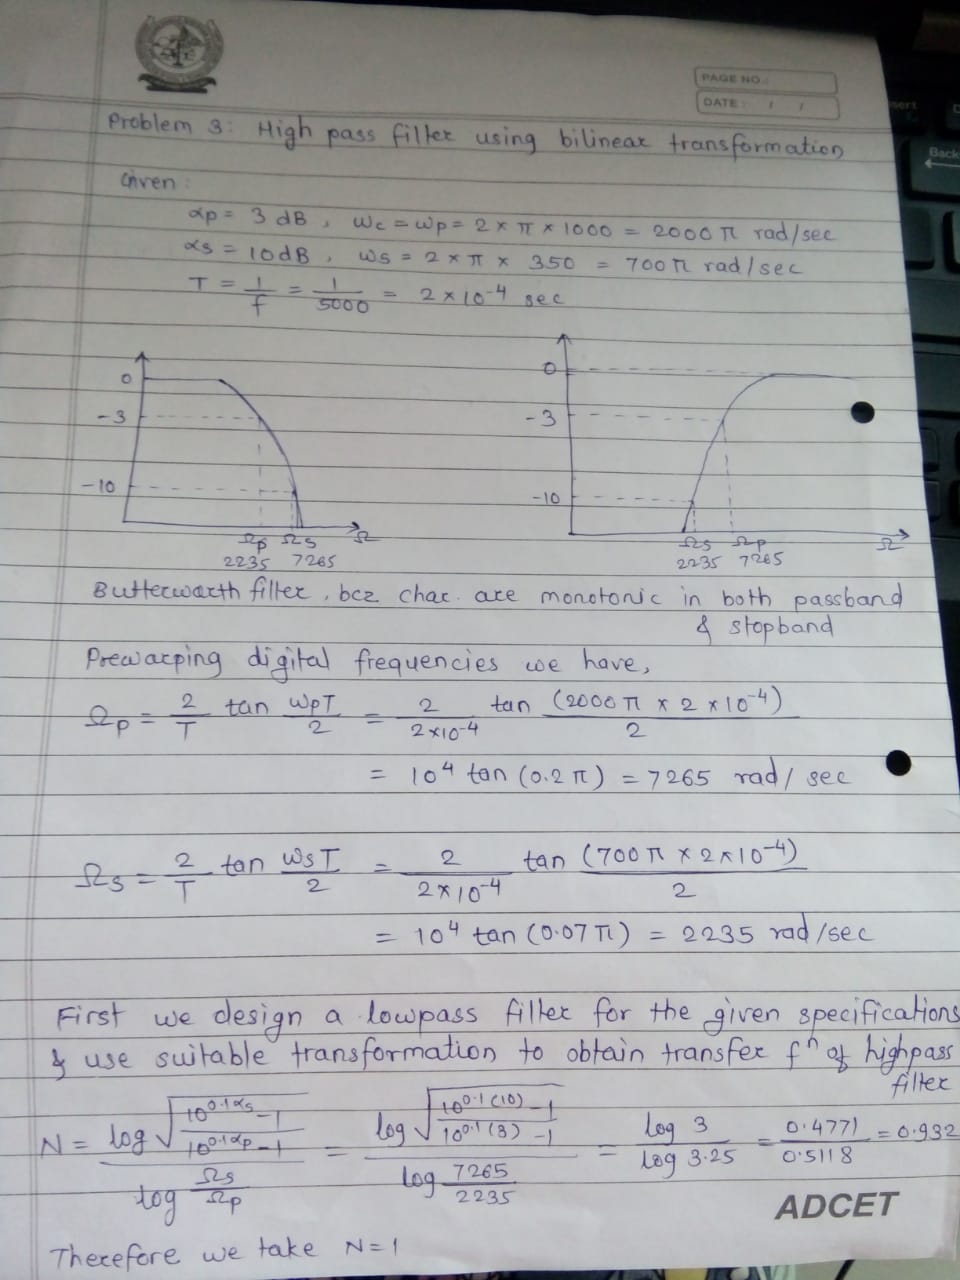 PAGE NO.:
DATE: / /
Problem 3: High pass filter using bilinear transformation
Given:
αp = 3 dB, ωc = ωp = 2 × π × 1000 = 2000 π rad/sec
αs = 10dB, ωs = 2 × π × 350 = 700 π rad/sec
T = 1/f = 1/5000 = 2×10⁻⁴ sec
0
-3
-10
Ωp Ωs Ω
2235 7265
0
-3
-10
Ωs Ωp Ω
2235 7265
Butterworth filter, bcz char. are monotonic in both passband
& stopband
Prewarping digital frequencies we have,
Ωp = 2/T tan ωpT/2 = 2/2×10⁻⁴ tan (2000 π × 2 × 10⁻⁴)/2
= 10⁴ tan (0.2 π) = 7265 rad/sec
Ωs = 2/T tan ωsT/2 = 2/2×10⁻⁴ tan (700 π × 2×10⁻⁴)/2
= 10⁴ tan (0.07 π) = 2235 rad/sec
First we design a lowpass filter for the given specifications
& use suitable transformation to obtain transfer fⁿ of highpass
filter
N = log √(10^0.1αs -1 / 10^0.1αp -1) / log Ωs/Ωp = log √(10^0.1(10) -1 / 10^0.1(3) -1) / log 7265/2235 = log 3 / log 3.25 = 0.4771/0.5118 = 0.932
ADCET
Therefore we take N=1